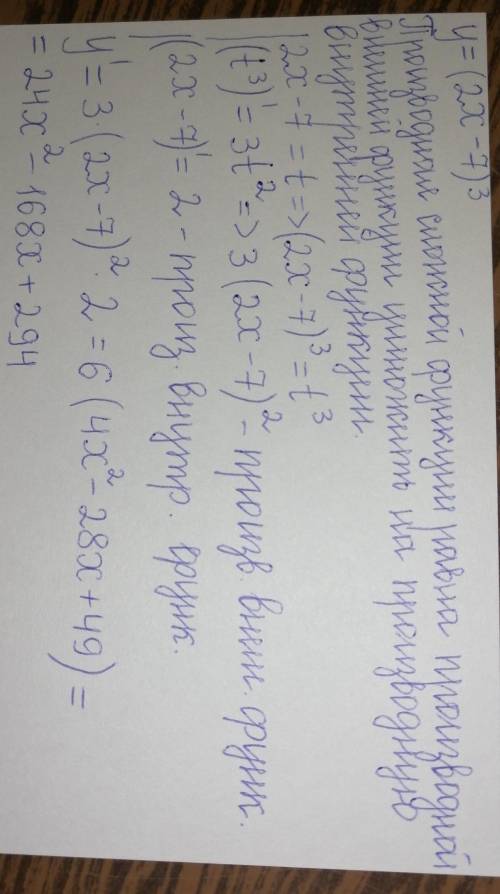 y = (2x - 7)³
Производная сложной функции равна производной
внешней функции умножить на производную
внутренней функции.
|2x - 7 = t => (2x - 7)³ = t³
|(t³)' = 3t² => 3(2x - 7)² - произв. внеш. функ.
|(2x - 7)' = 2 - произ. внутр. функ.
y' = 3(2x - 7)² · 2 = 6(4x² - 28x + 49) =
= 24x² - 168x + 294